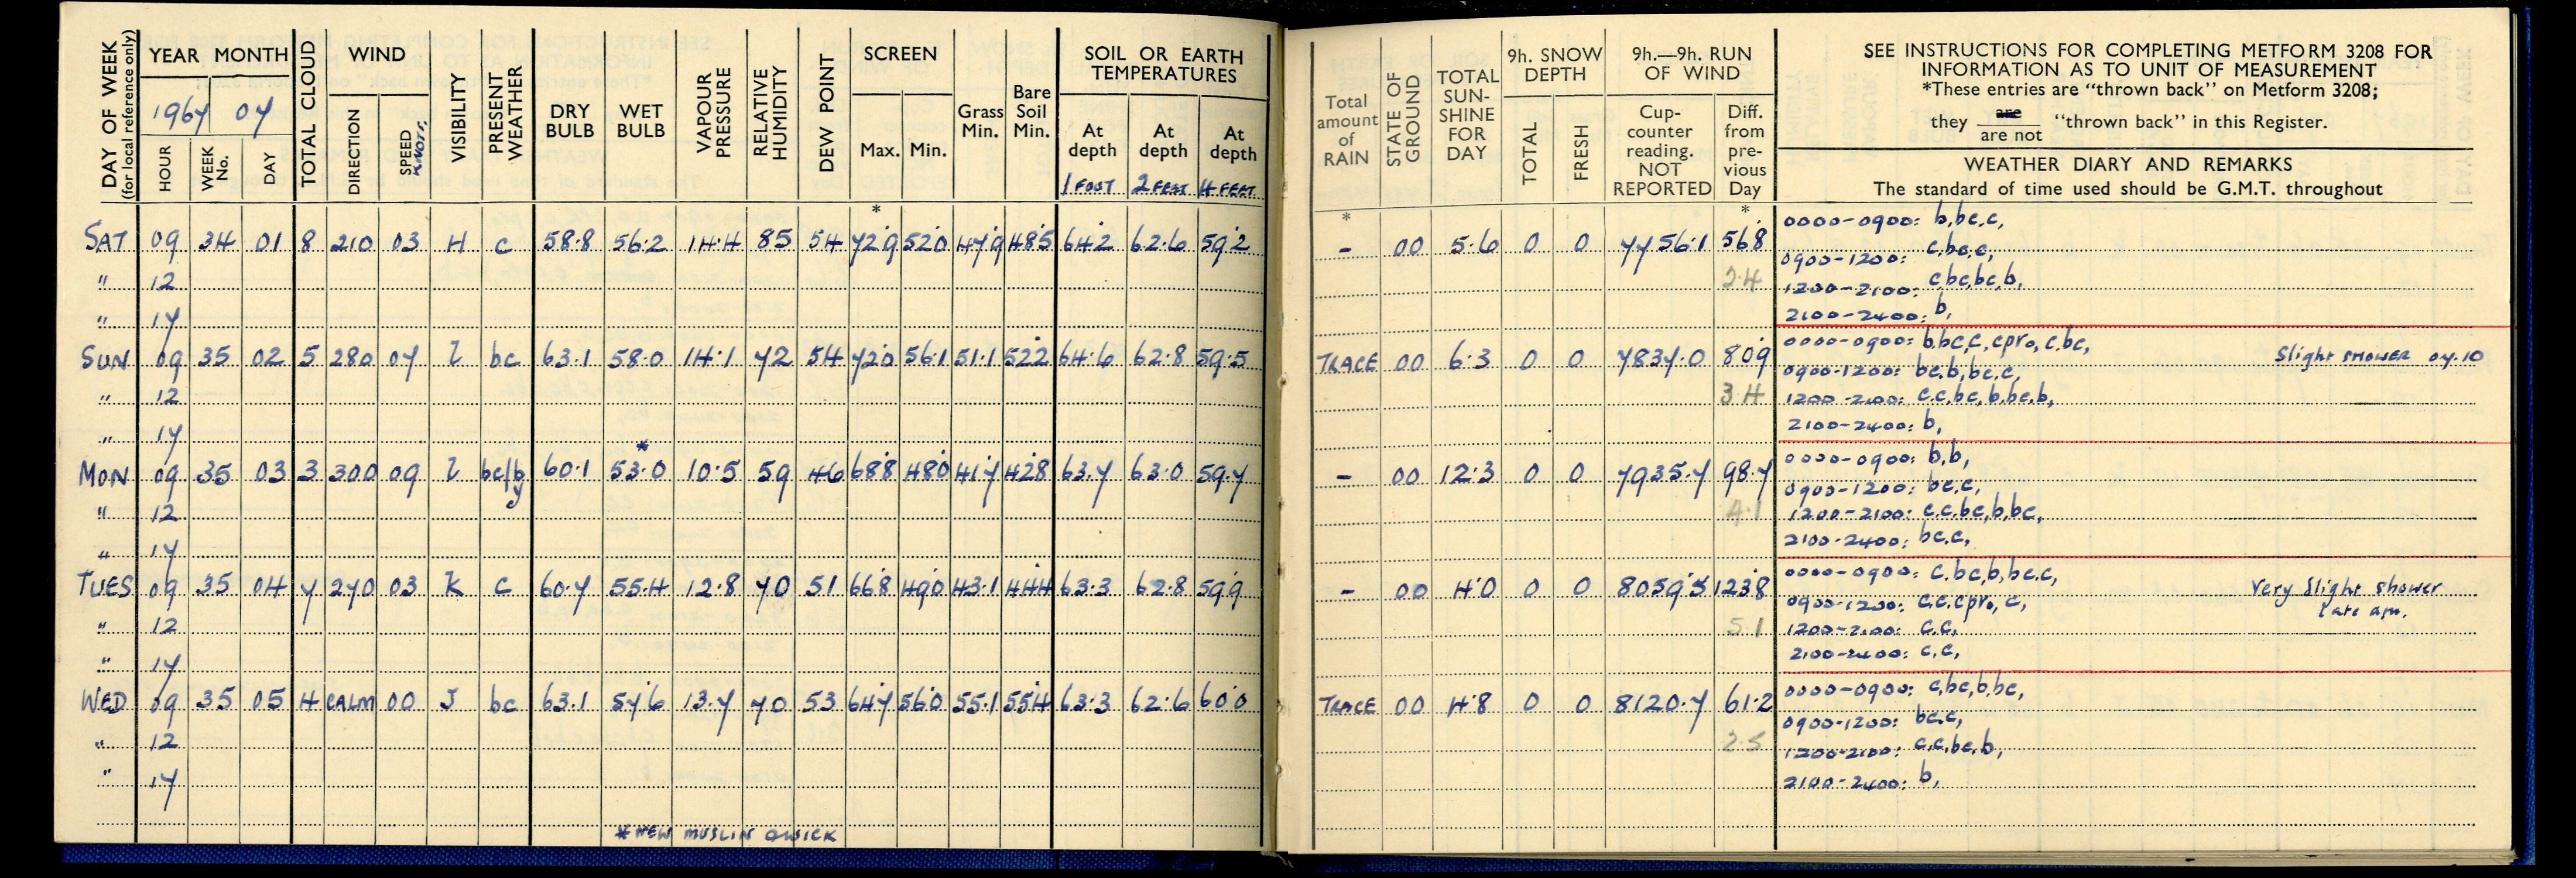 DAY OF WEEK
(for local reference only)
YEAR MONTH
1967 07
HOUR
WEEK No.
DAY
TOTAL CLOUD
WIND
DIRECTION
SPEED KNOTS
VISIBILITY
PRESENT WEATHER
DRY BULB
WET BULB
VAPOUR PRESSURE
RELATIVE HUMIDITY
DEW POINT
SCREEN
Max.
Min.
Grass Min.
Bare Soil Min.
SOIL OR EARTH TEMPERATURES
At depth 1 FOOT
At depth 2 FEET
At depth 4 FEET
Total amount of RAIN
STATE OF GROUND
TOTAL SUN-SHINE FOR DAY
9h. SNOW DEPTH
TOTAL
FRESH
9h.—9h. RUN OF WIND
Cup-counter reading. NOT REPORTED
Diff. from pre-vious Day
SEE INSTRUCTIONS FOR COMPLETING METFORM 3208 FOR
INFORMATION AS TO UNIT OF MEASUREMENT
*These entries are "thrown back" on Metform 3208;
they are / are not "thrown back" in this Register.
WEATHER DIARY AND REMARKS
The standard of time used should be G.M.T. throughout
* * *
SAT 09 34 01 8 210 03 H c 58.8 56.2 14.4 85 54 72.9 52.0 47.9 48.5 64.2 62.6 59.2 - 00 5.6 0 0 7756.1 56.8 0000-0900: b,bc,c,
0900-1200: c,bc,c,
" 12 2.4 1200-2100: c,bc,bc,b,
" 17 2100-2400: b,
SUN 09 35 02 5 280 07 I bc 63.1 58.0 14.1 72 54 72.0 56.1 51.1 52.2 64.6 62.8 59.5 TRACE 00 6.3 0 0 7837.0 80.9 0000-0900: b,bc,c,cpro,c,bc, Slight SHOWER 07.10
0900-1200: bc,b,bc,c,
" 12 3.4 1200-2100: c,c,bc,b,bc,b,
" 17 2100-2400: b,
*
MON 09 35 03 3 300 09 I bc/by 60.1 53.0 10.5 59 46 68.8 48.0 41.7 42.8 63.7 63.0 59.7 - 00 12.3 0 0 7935.7 98.7 0000-0900: b,b,
0900-1200: bc,c,
" 12 4.1 1200-2100: c,c,bc,b,bc,
" 17 2100-2400: bc,c,
TUES 09 35 04 7 270 03 K c 60.7 55.4 12.8 70 51 66.8 49.0 43.1 44.4 63.3 62.8 59.9 - 00 4.0 0 0 8059.5 123.8 0000-0900: c,bc,b,bc,c, Very slight shower
0900-1200: c,c,cpro,c, late am.
" 12 5.1 1200-2100: c,c,
" 17 2100-2400: c,c,
WED 09 35 05 4 CALM 00 J bc 63.1 57.6 13.7 70 53 64.7 56.0 55.1 55.4 63.3 62.6 60.0 TRACE 00 4.8 0 0 8120.7 61.2 0000-0900: c,bc,b,bc,
0900-1200: bc,c,
" 12 2.5 1200-2100: c,c,bc,b,
" 17 2100-2400: b,
* NEW MUSLIN & WICK